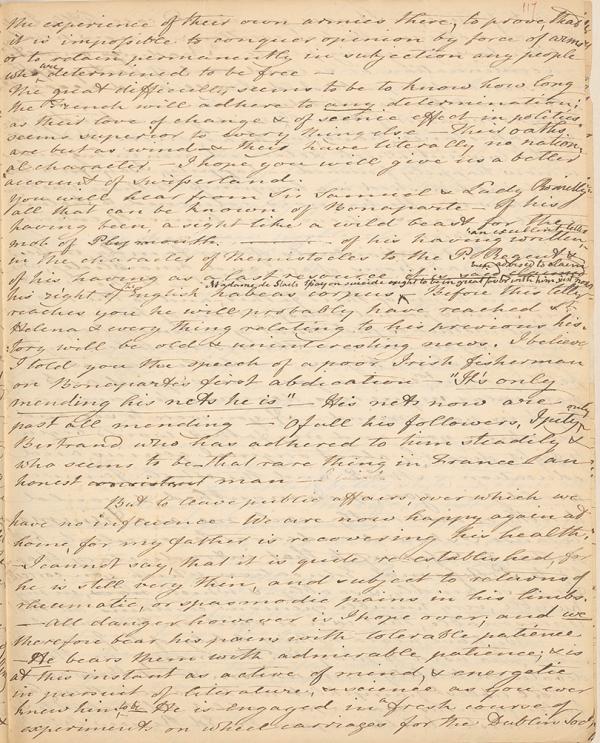 117
the experience of their own armies there, to prove, that
it is impossible to conquer opinion by force of arms
or to retain permanently in subjection any people
who were determined to be free —
The great difficulty seems to be to know how long
the French will adhere to any determination;
as their love of change & of scenic effect in politics
seems superior to every thing else — Their oaths
are but as wind — & they have literally no nation-
al character. — I hope you will give us a better
account of Swisserland.
You will hear from Sir Samuel & Lady Romilly
all that can be known of Bonaparte — of his
having been, a sight like a wild beast for the
mob of Plymouth — of his having written an excellent letter
in the character of Themistocles to the P. Regent &
of his having as a last resource it is said claimed been advised to claim
his right of the English habeas corpus. Before this letter
Madame de Staels Essay on suicide ought to be in great favor with him just now
reaches you he will probably have reached St
Helena & every thing relating to his previous his-
tory will be old & uninteresting news. I believe
I told you the speech of a poor Irish fisherman
on Boneparte's first abdication — "It's only
mending his nets he is" — His nets now are
past all mending — Of all his followers, I pity only
Bertrand who has adhered to him steadily &
who seems to be that rare thing in France — an
honest consistent man —
But to leave public affairs, over which we
have no influence — We are now happy again at
home, for my father is recovering his health.
— I cannot say, that it is quite re-established, for
he is still very thin, and subject to returns of
rheumatic, or spasmodic pains in his limbs.
— All danger however is I hope over, and we
therefore bear his pains with tolerable patience
— He bears them with admirable patience; & is
at this instant as active of mind, & energetic
in pursuit of literature, & science as you ever
knew him to be. He is engaged in a fresh course of
experiments on wheel carriages for the Dublin Soc